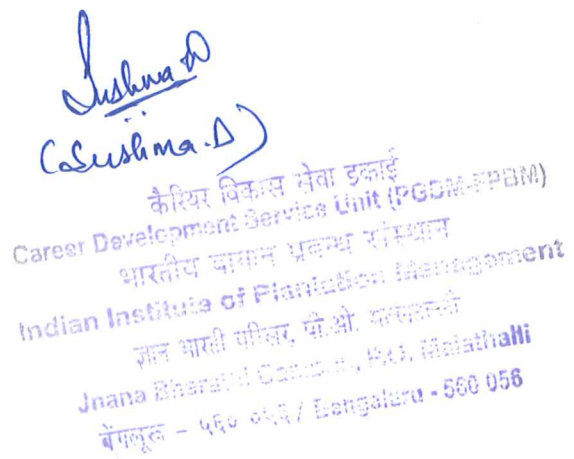 Sushma D
(Sushma.D)
कैरियर विकास सेवा इकाई
Career Development Service Unit (PGDM-FPBM)
भारतीय बागान प्रबन्ध संस्थान
Indian Institute of Plantation Management
ज्ञान भारती परिसर, पी.ओ.
Jnana Bharathi Campus, P.O. Malathalli
बेंगलूरू - ५६० ०५६ / Bengaluru - 560 056